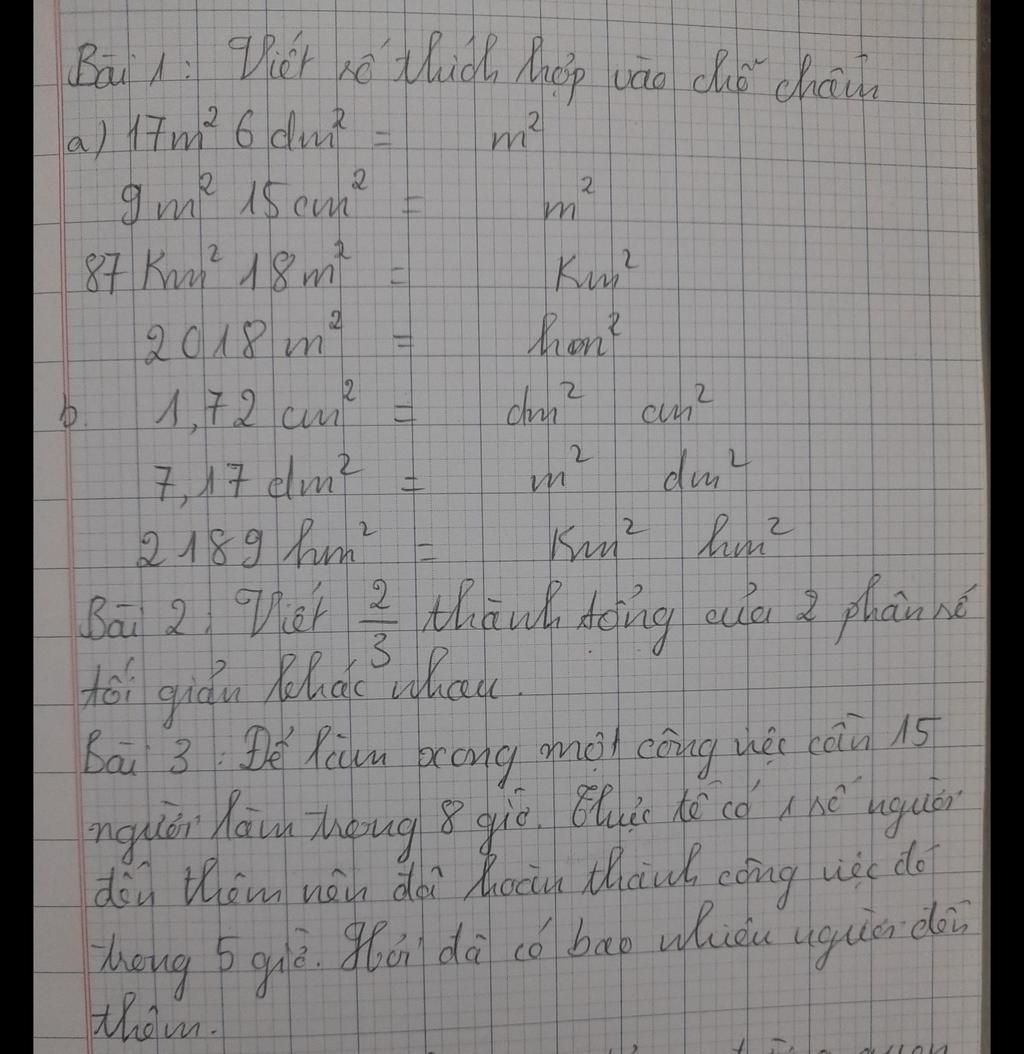 Bài 1: Viết số thích hợp vào chỗ chấm
a) 17m² 6 dm² = m²
9m² 15cm² = m²
87 Km² 18m² = Km²
2018 m² = hm²
b. 1,72 cm² = dm² cm²
7,17 dm² = m² dm²
2189 hm² = Km² hm²
Bài 2: Viết 2/3 thành tổng của 2 phân số
tối giản khác nhau.
Bài 3: Để làm xong một công việc cần 15
người làm trong 8 giờ. Thực tế có 1 số người
đến thêm nên đã hoàn thành công việc đó
trong 5 giờ. Hỏi đã có bao nhiêu người đến
thêm.